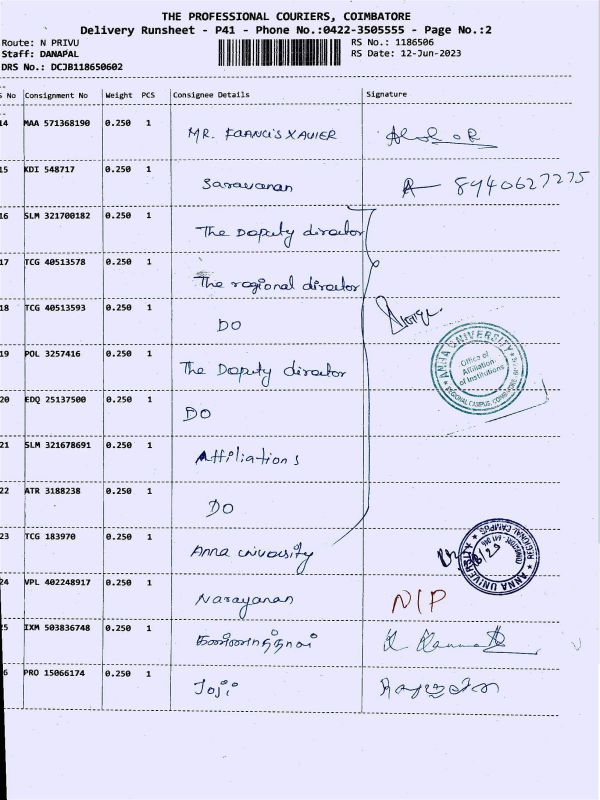 THE PROFESSIONAL COURIERS, COIMBATORE
Delivery Runsheet - P41 - Phone No.:0422-3505555 - Page No.:2
Route: N PRIVU
RS No.: 1186506
Staff: DANAPAL
RS Date: 12-Jun-2023
DRS No.: DCJB118650602
No Consignment No Weight PCS Consignee Details Signature
14 MAA 571368190 0.250 1 MR. FRANCIS XAVIER
15 KDI 548717 0.250 1 Saravanan 8940627275
16 SLM 321700182 0.250 1 The Deputy director
17 TCG 40513578 0.250 1 The regional director
18 TCG 40513593 0.250 1 DO
19 POL 3257416 0.250 1 The Deputy director
ANNA UNIVERSITY
Office of
Affiliation
of Institutions
REGIONAL CAMPUS, COIMBATORE
20 EDQ 25137500 0.250 1 DO
21 SLM 321678691 0.250 1 Affiliations
22 ATR 3188238 0.250 1 DO
23 TCG 183970 0.250 1 Anna university
ANNA UNIVERSITY
REGIONAL CAMPUS
24 VPL 402248917 0.250 1 Narayanan N/P
5 IXM 503836748 0.250 1
6 PRO 15066174 0.250 1 Joji